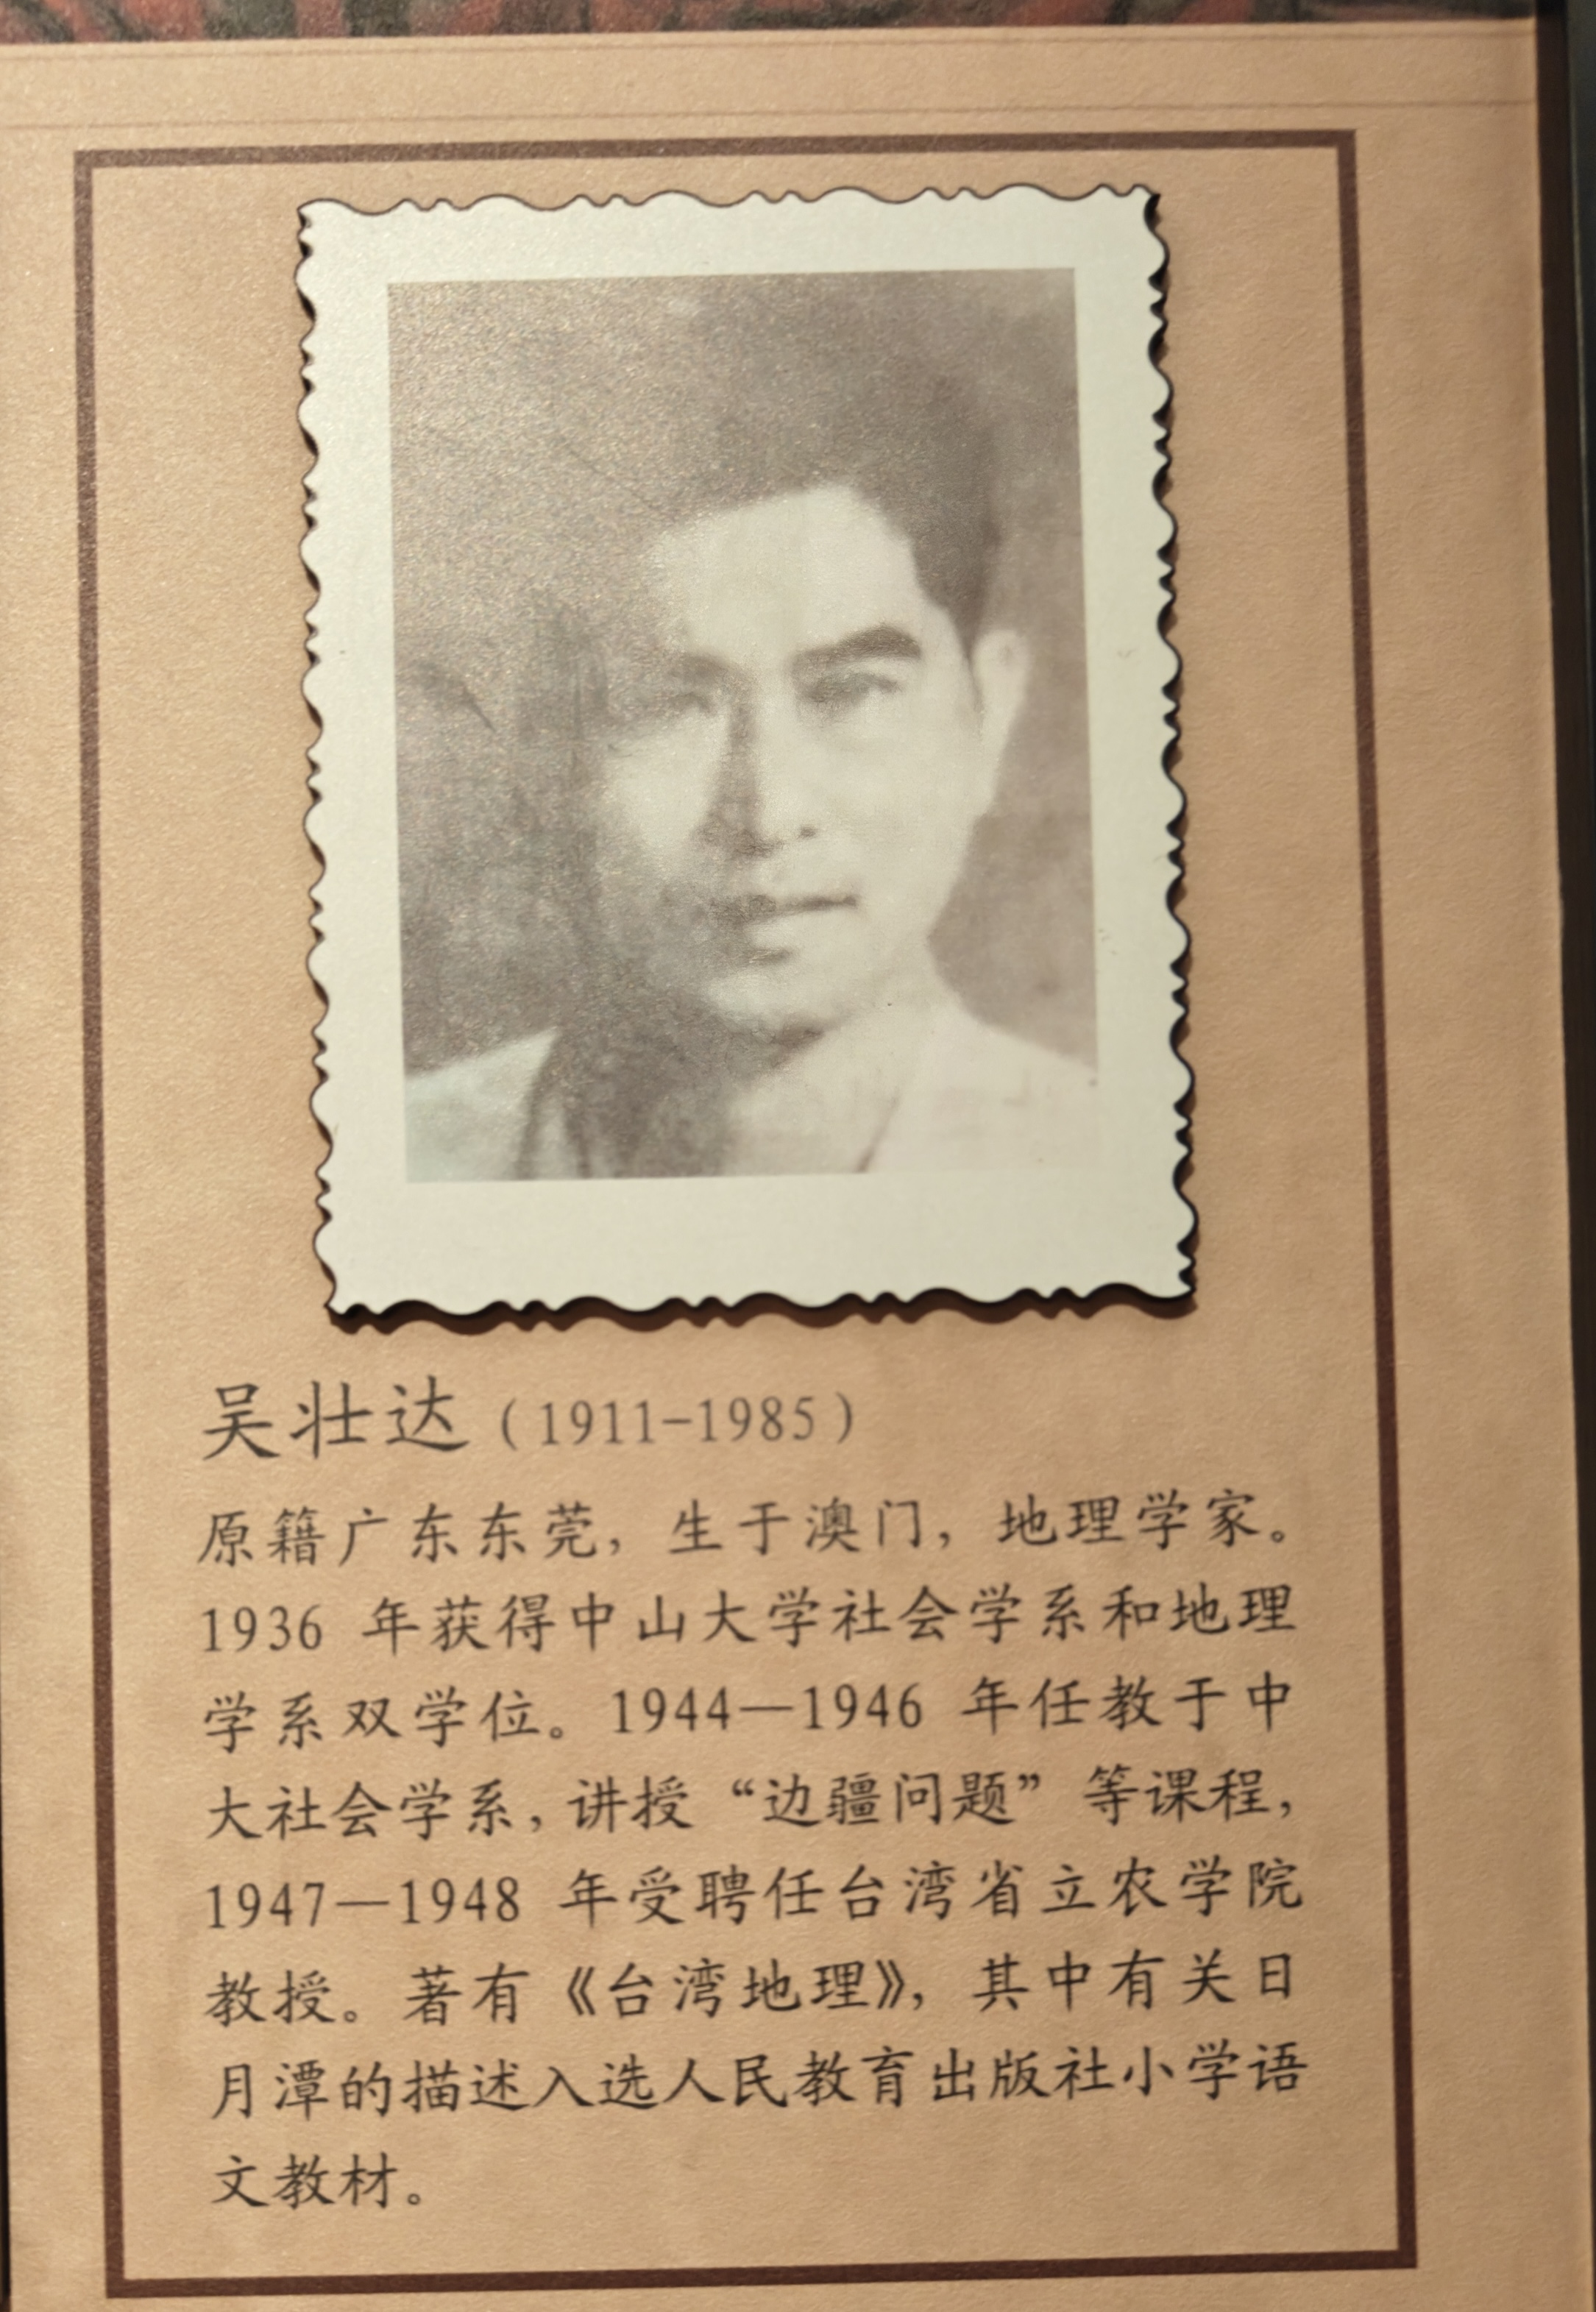 吴壮达（1911-1985）
原籍广东东莞，生于澳门，地理学家。
1936 年获得中山大学社会学系和地理
学系双学位。1944—1946 年任教于中
大社会学系，讲授“边疆问题”等课程，
1947—1948 年受聘任台湾省立农学院
教授。著有《台湾地理》，其中有关日
月潭的描述入选人民教育出版社小学语
文教材。